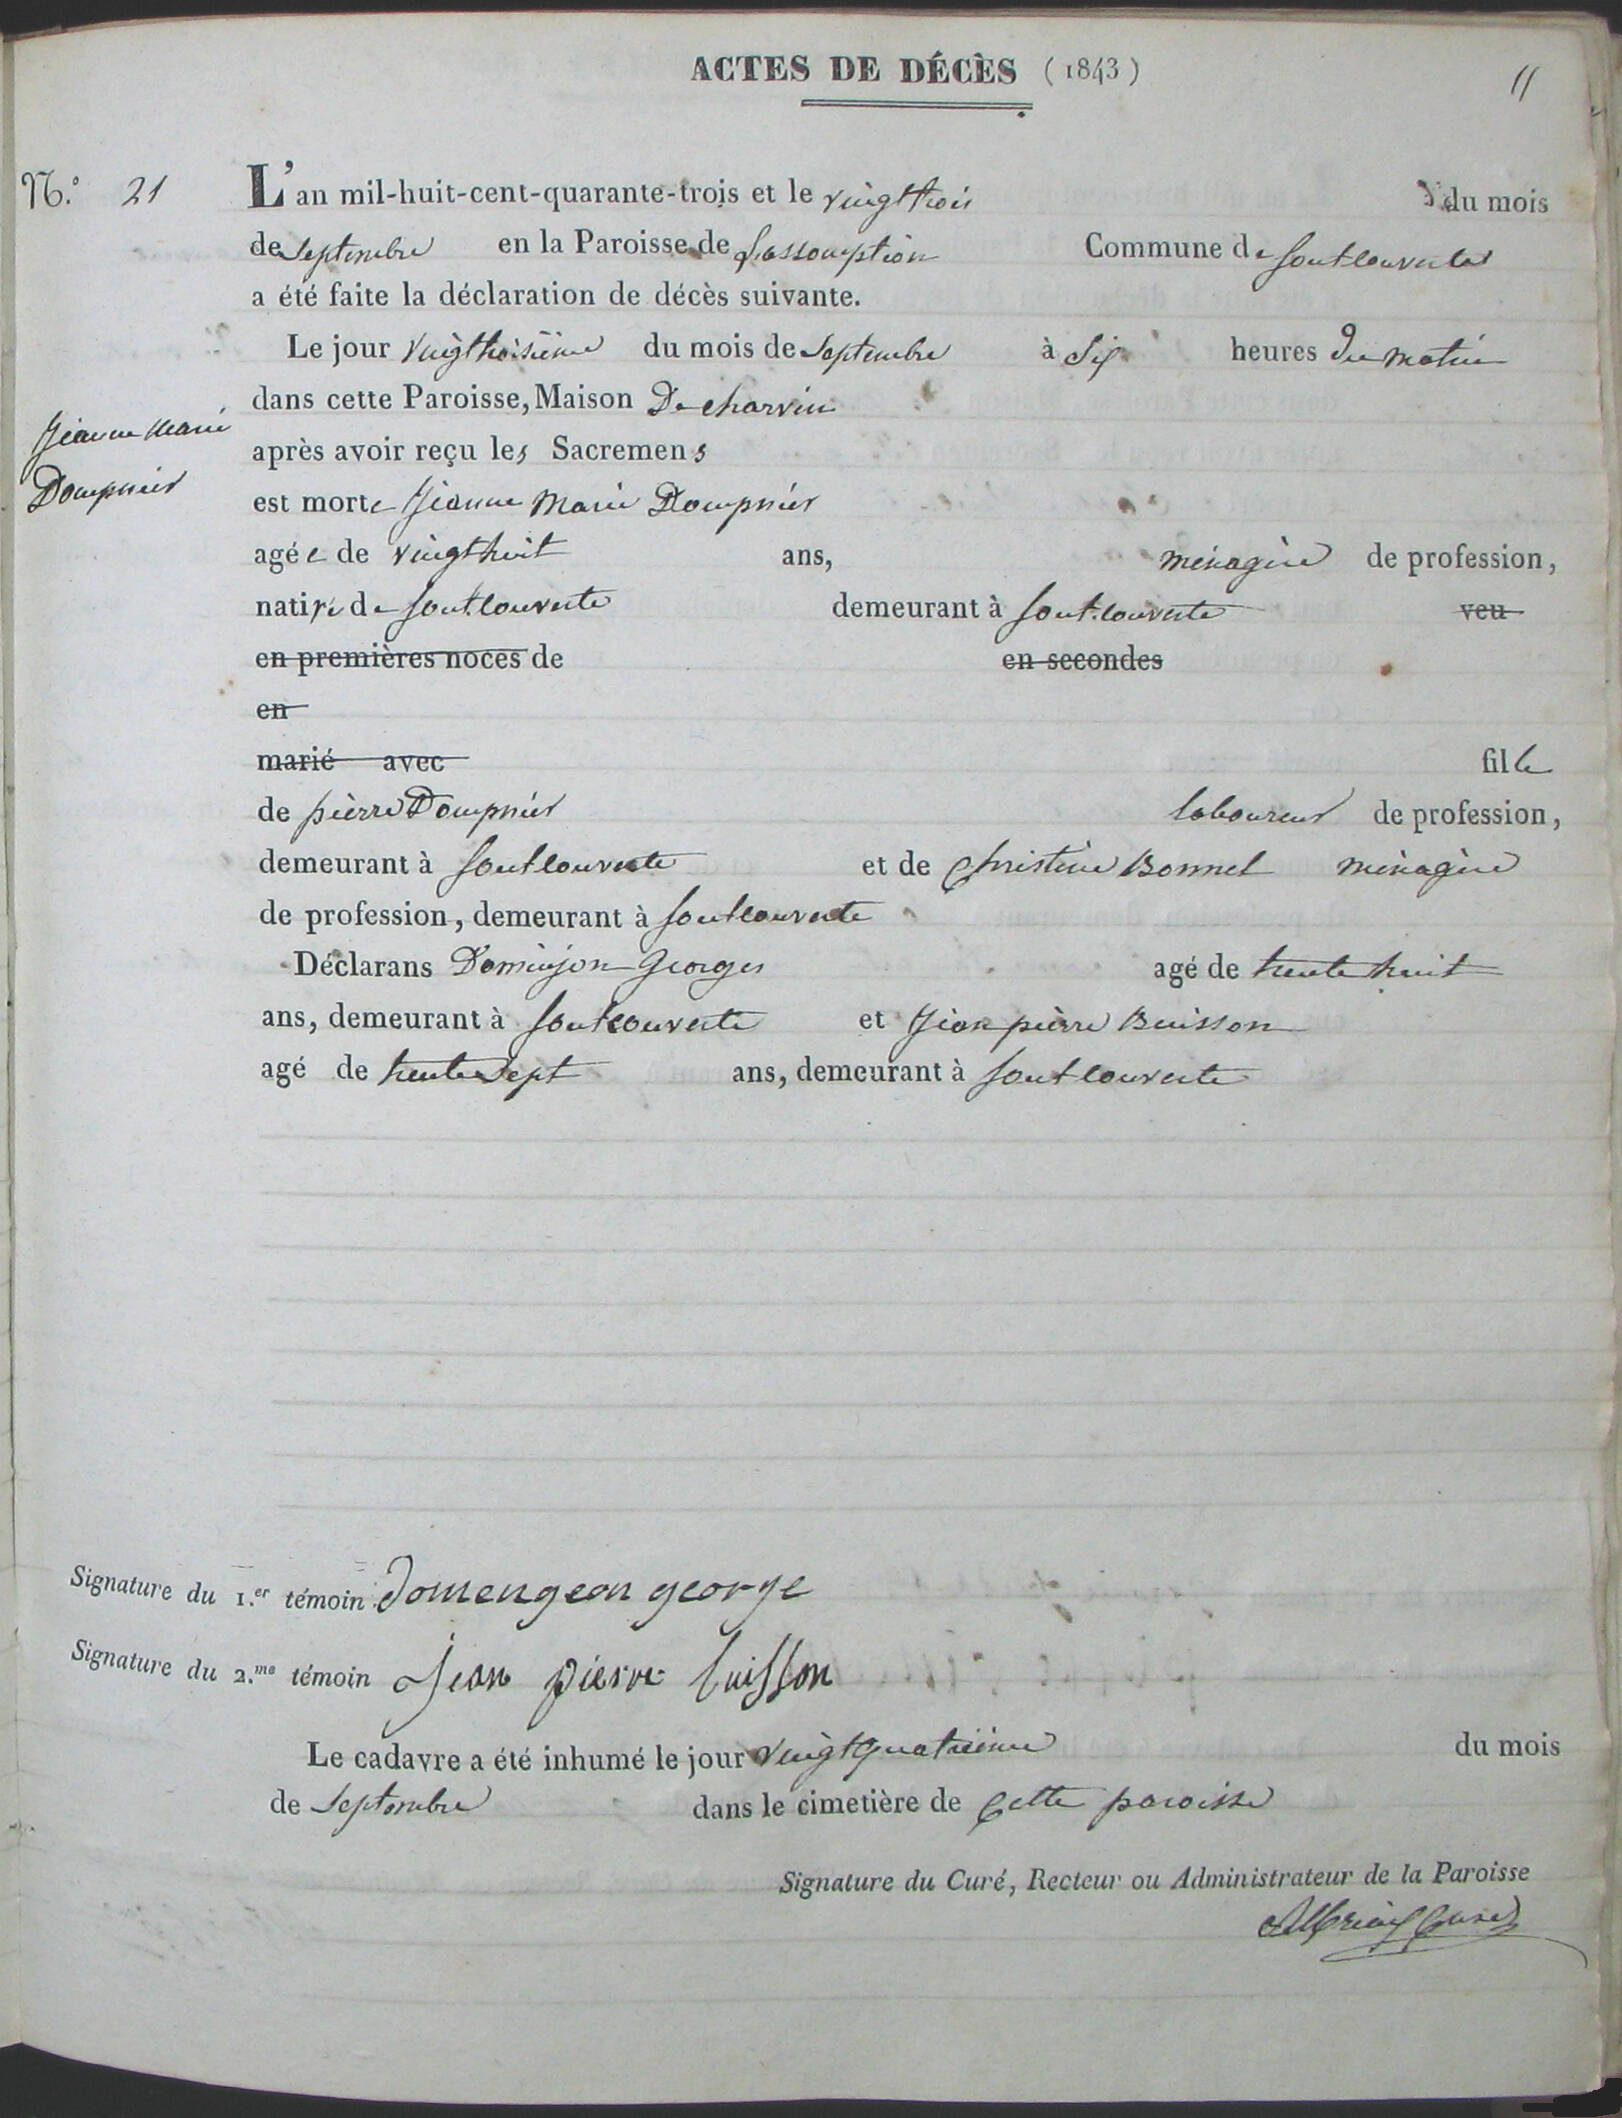 ACTES DE DÉCÈS (1843)
11
N.° 21
L'an mil-huit-cent-quarante-trois et le vingt trois du mois
de Septembre en la Paroisse de Lassomption Commune de fontcouverte
a été faite la déclaration de décès suivante.
Le jour vingtroisième du mois de Septembre à Six heures du matin
dans cette Paroisse, Maison De charvin
Jeanne Marie
Dompnier
après avoir reçu les Sacremens
est morte Jeanne Marie Dompnier
agée de vingthuit ans, ménagère de profession,
native de fontcouverte demeurant à fontcouverte veu
en premières noces de en secondes
en
marié avec fille
de pierre Dompnier laboureur de profession,
demeurant à fontcouverte et de Christine Bonnel ménagère
de profession, demeurant à fontcouverte
Déclarans Dominjon Georges agé de trente huit
ans, demeurant à fontcouverte et Jean pierre Buisson
agé de trente Sept ans, demeurant à fontcouverte
Signature du 1.er témoin Domengeon george
Signature du 2.me témoin Jean pierre buisson
Le cadavre a été inhumé le jour vingtquatrième du mois
de Septembre dans le cimetière de Cette paroisse
Signature du Curé, Recteur ou Administrateur de la Paroisse
Curé